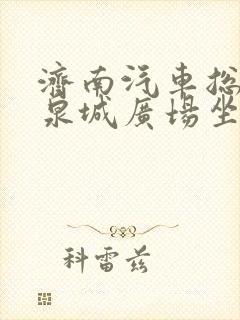 濟南汽車总
泉城廣場坐
科雷兹